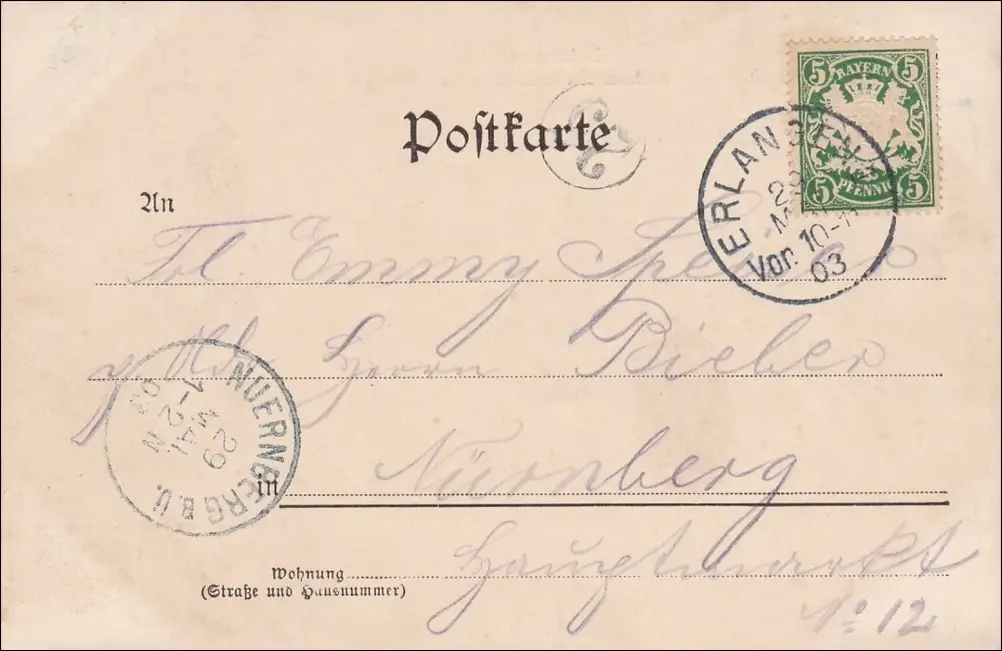 Postkarte
27
5 BAYERN 5
5 PFENNIG 5
ERLANGEN
29
MAI
Vor. 10-11
03
An
Frl Emmy
p. Adr. Herrn Bieber
NUERNBERG B.U.
29
MAI
1-2 N
03
in Nürnberg
Wohnung Hauptmarkt
(Straße und Hausnummer)
No 12